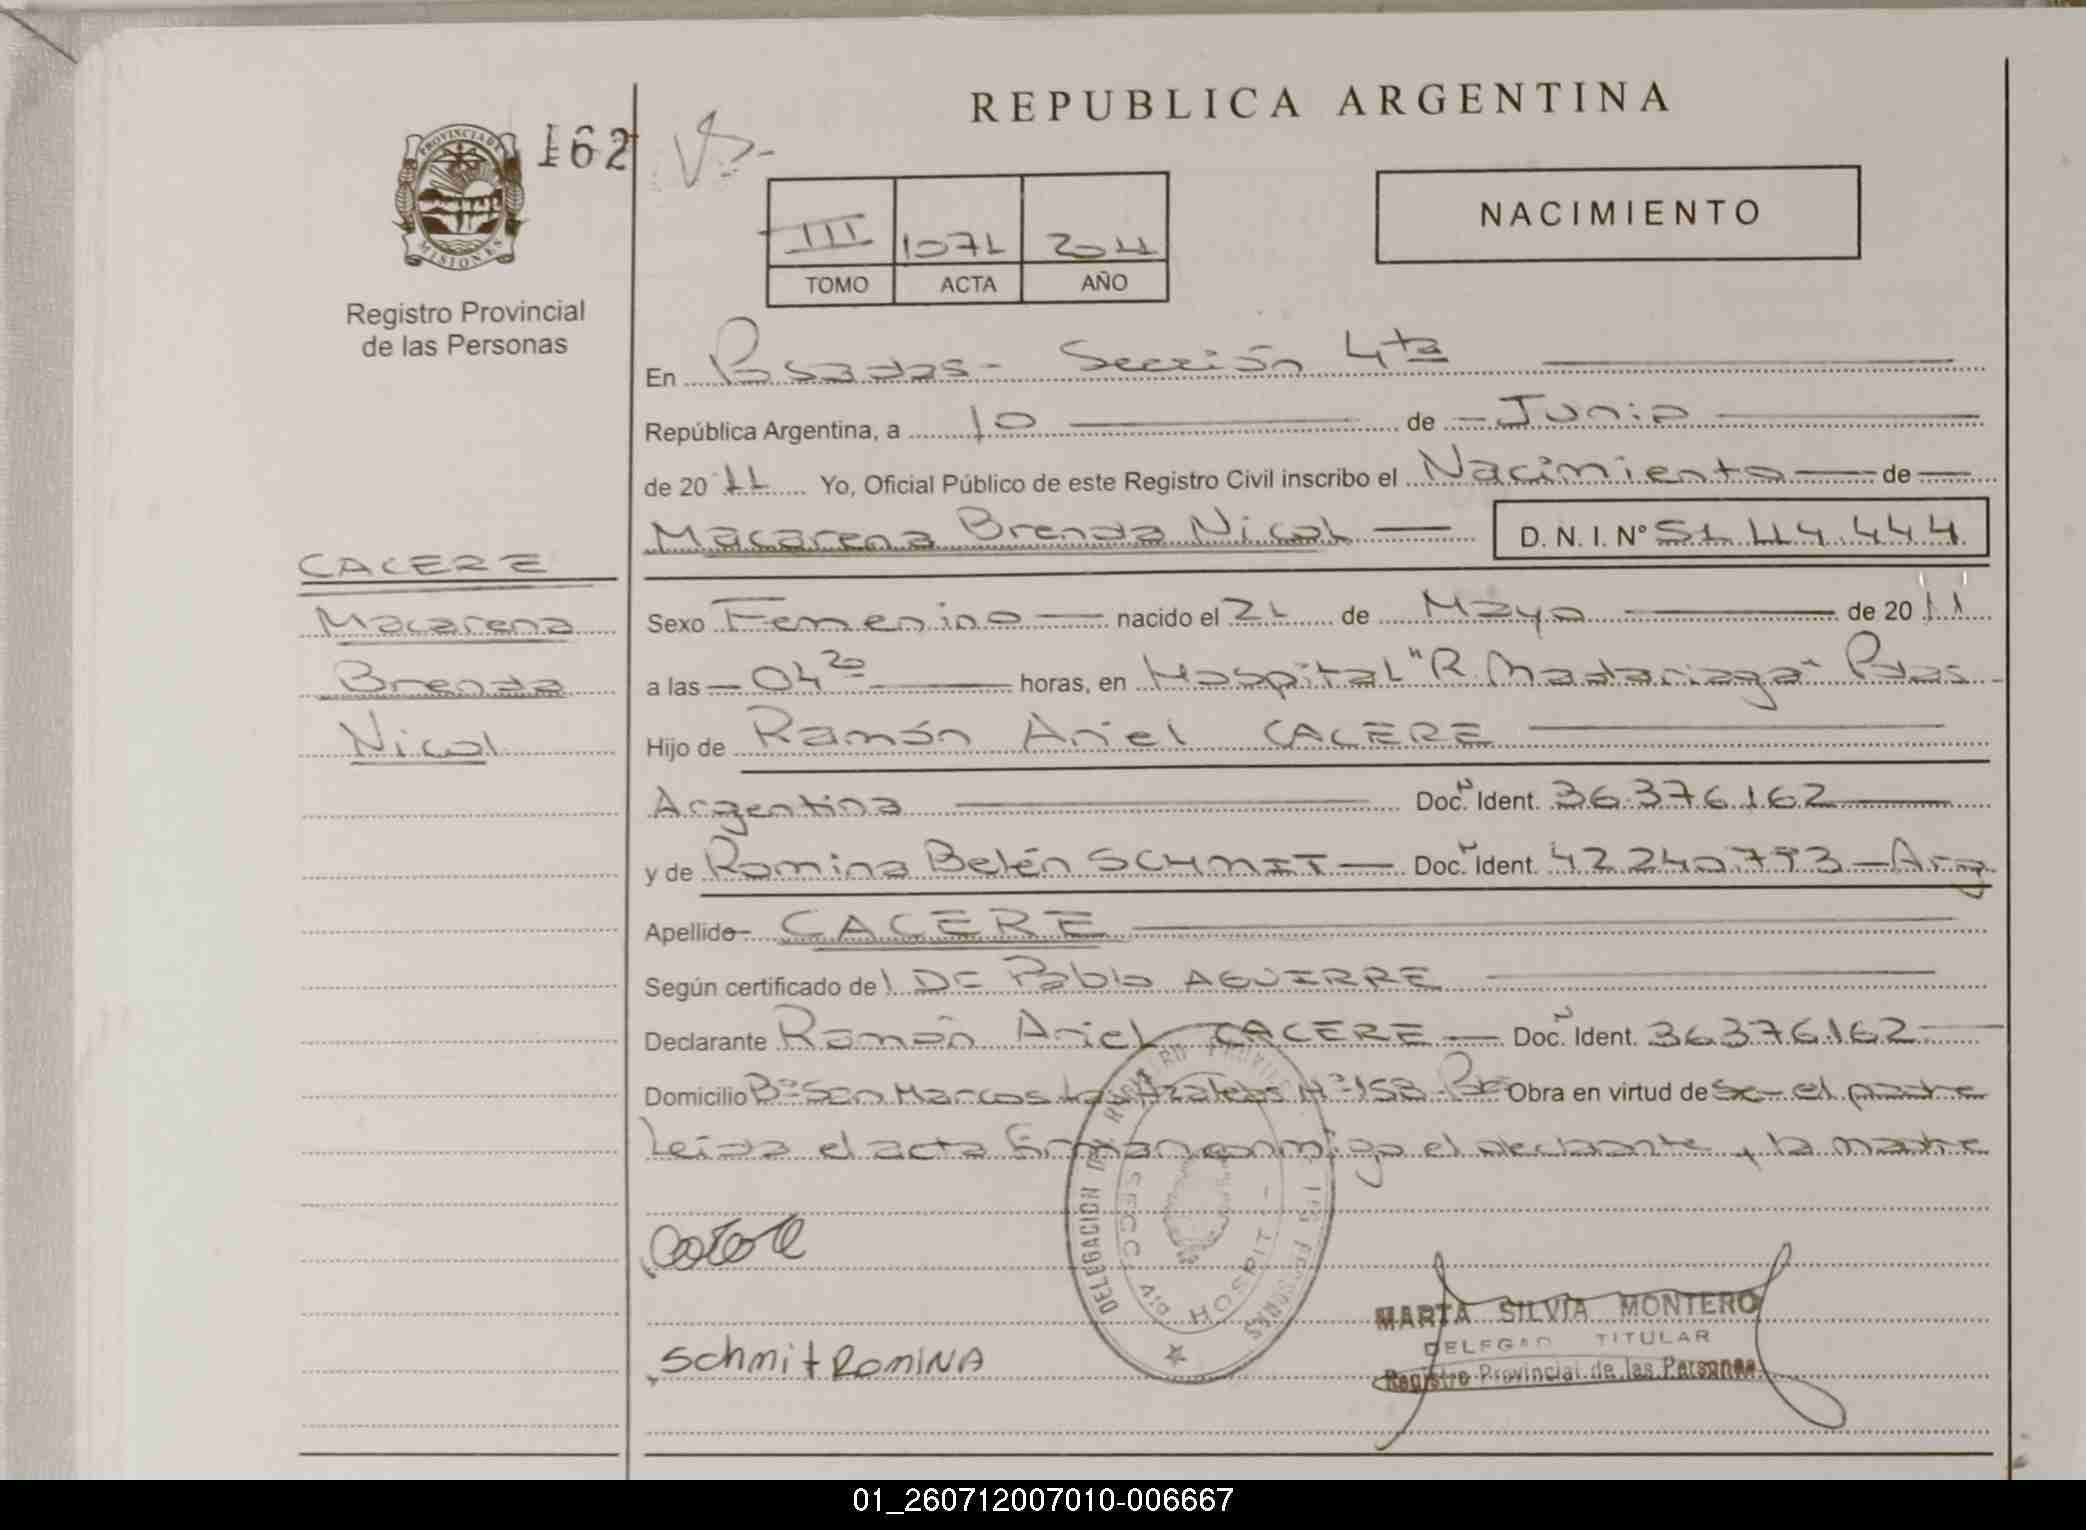 REPUBLICA ARGENTINA
PROVINCIA DE
MISIONES
162
Registro Provincial
de las Personas
III 1071 2011
TOMO ACTA AÑO
NACIMIENTO
En Posadas - Sección 4ta
República Argentina, a 10 de Junio
de 2011 Yo, Oficial Público de este Registro Civil inscribo el Nacimiento de
Macarena Brenda Nicol D. N. I. N° 51.114.444
CACERE
Macarena
Brenda
Nicol
Sexo Femenino nacido el 21 de Mayo de 2011
a las 04 20 horas, en Hospital "R. Madariaga" Pdas
Hijo de Ramón Ariel CACERE
Argentina Doc. Ident. 36.376.162
y de Romina Belén SCHMIT Doc. Ident. 42.240.793 - Arg
Apellido CACERE
Según certificado de Pablo AGUIRRE
Declarante Ramón Ariel CACERE Doc. Ident. 36.376.162
Domicilio B° San Marcos Las Azaleas N° 158 Obra en virtud de ser el padre
Leída el acta firman conmigo el declarante y la madre
DELEGACION DEL REGISTRO PROVINCIAL DE LAS PERSONAS
SECC. 4ta HOSPIT
Schmit ROMINA
MARTA SILVIA MONTERO
DELEGAD TITULAR
Registro Provincial de las Personas
01_260712007010-006667